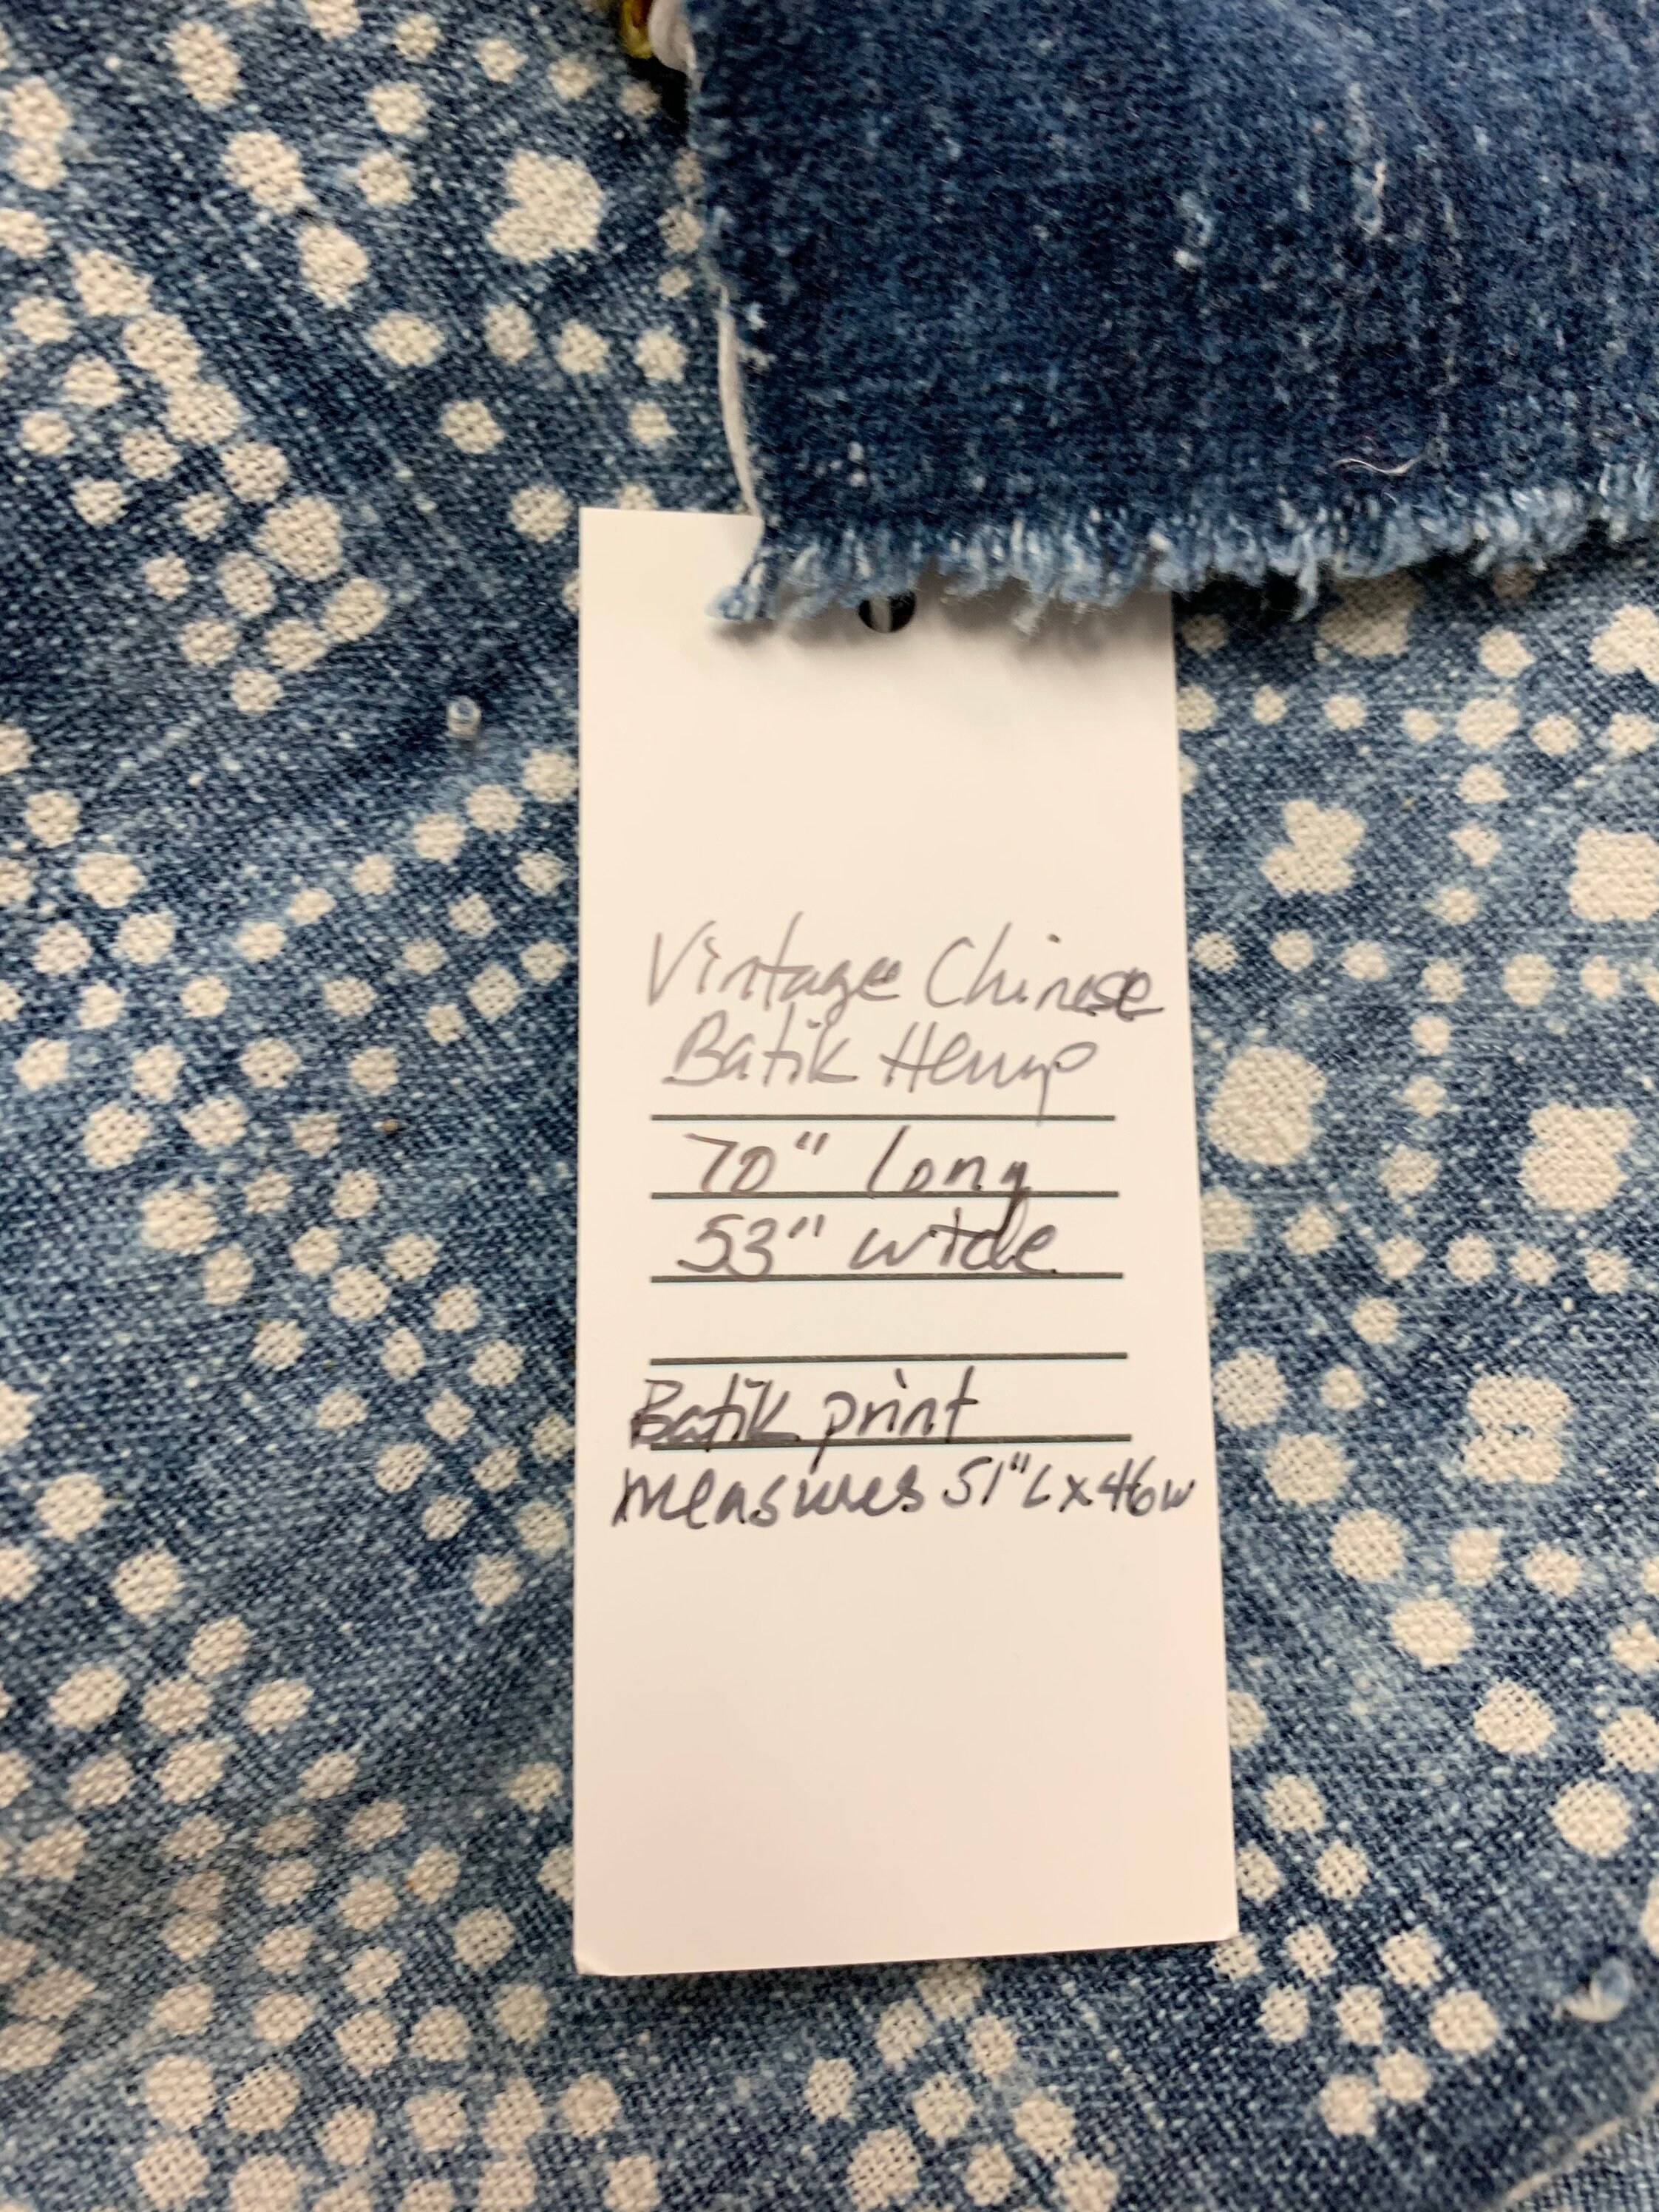 Vintage Chinese
Batik Hemp
70" long
53" wide
Batik print
measures 51"L x 46w